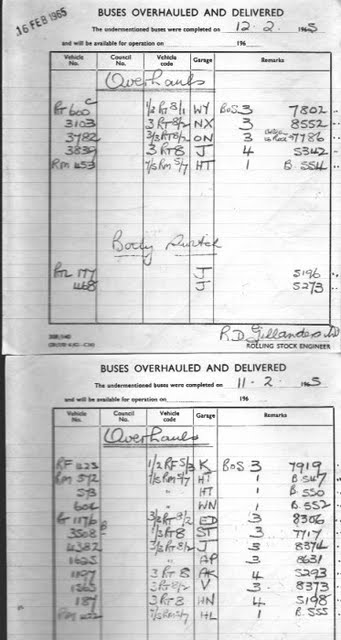 16 FEB 1965
BUSES OVERHAULED AND DELIVERED
The undermentioned buses were completed on 12. 2. 1965
and will be available for operation on 196
Vehicle No. Council No. Vehicle code Garage Remarks
Overhauls
RT 600 C 1/2 RT 8/1 WY BOS 3 7802
3103 3 RT 8/2 NX 3 8552
3782 3/2 RT 8/2 ON 3 7786
3839 3 RT 8 J 4 5342
RM 453 7/5 RM 5/7 HT 1 B. 554
Body Switch
RTL 177 J 5196
468 J 5273
R.D. Gillanders
ROLLING STOCK ENGINEER
BUSES OVERHAULED AND DELIVERED
The undermentioned buses were completed on 11. 2. 1965
and will be available for operation on 196
Vehicle No. Council No. Vehicle code Garage Remarks
Overhauls
RF 423 1/2 RF 5/3 K BOS 3 7919
RM 572 7/5 RM 5/7 HT 1 B. 547
593 " HT 1 B. 550
604 " WN 1 B. 552
RT 1176 3/2 RT 8/2 ED 3 8306
3508 B 1/3 RT 8 ST 3 7717
4382 3/2 RT 8/2 J 3 8374
1625 " AP 3 8631
1197 3 RT 8 AK 4 5293
1363 3 RT 8/2 V 3 8373
187 3 RT 8 HN 4 5198
HL 1 B. 555